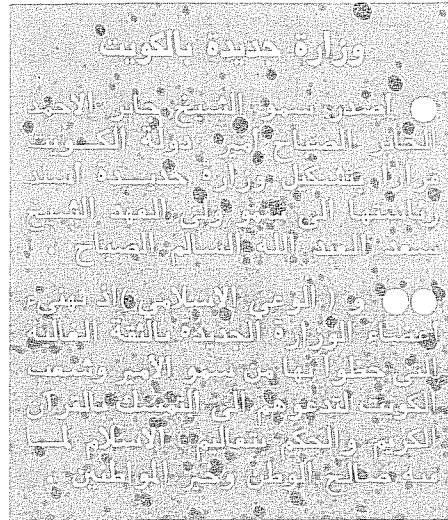 وزارة جديدة بالكويت
أصدر سمو الشيخ جابر الاحمد
الجابر الصباح أمير دولة الكويت
قرارا بتشكيل وزارة جديدة أسند
رئاستها الى سمو ولي العهد الشيخ
سعد العبد الله السالم الصباح .
و ( الوعي الاسلامي ) اذ تهنىء
أعضاء الوزارة الجديدة بالثقة الغالية
التي حظوا بها من سمو الأمير وشعب
الكويت لتدعوهم الى التمسك بالقرآن
الكريم والحكم بتعاليم الاسلام لما
فيه صالح الوطن وخير المواطنين .